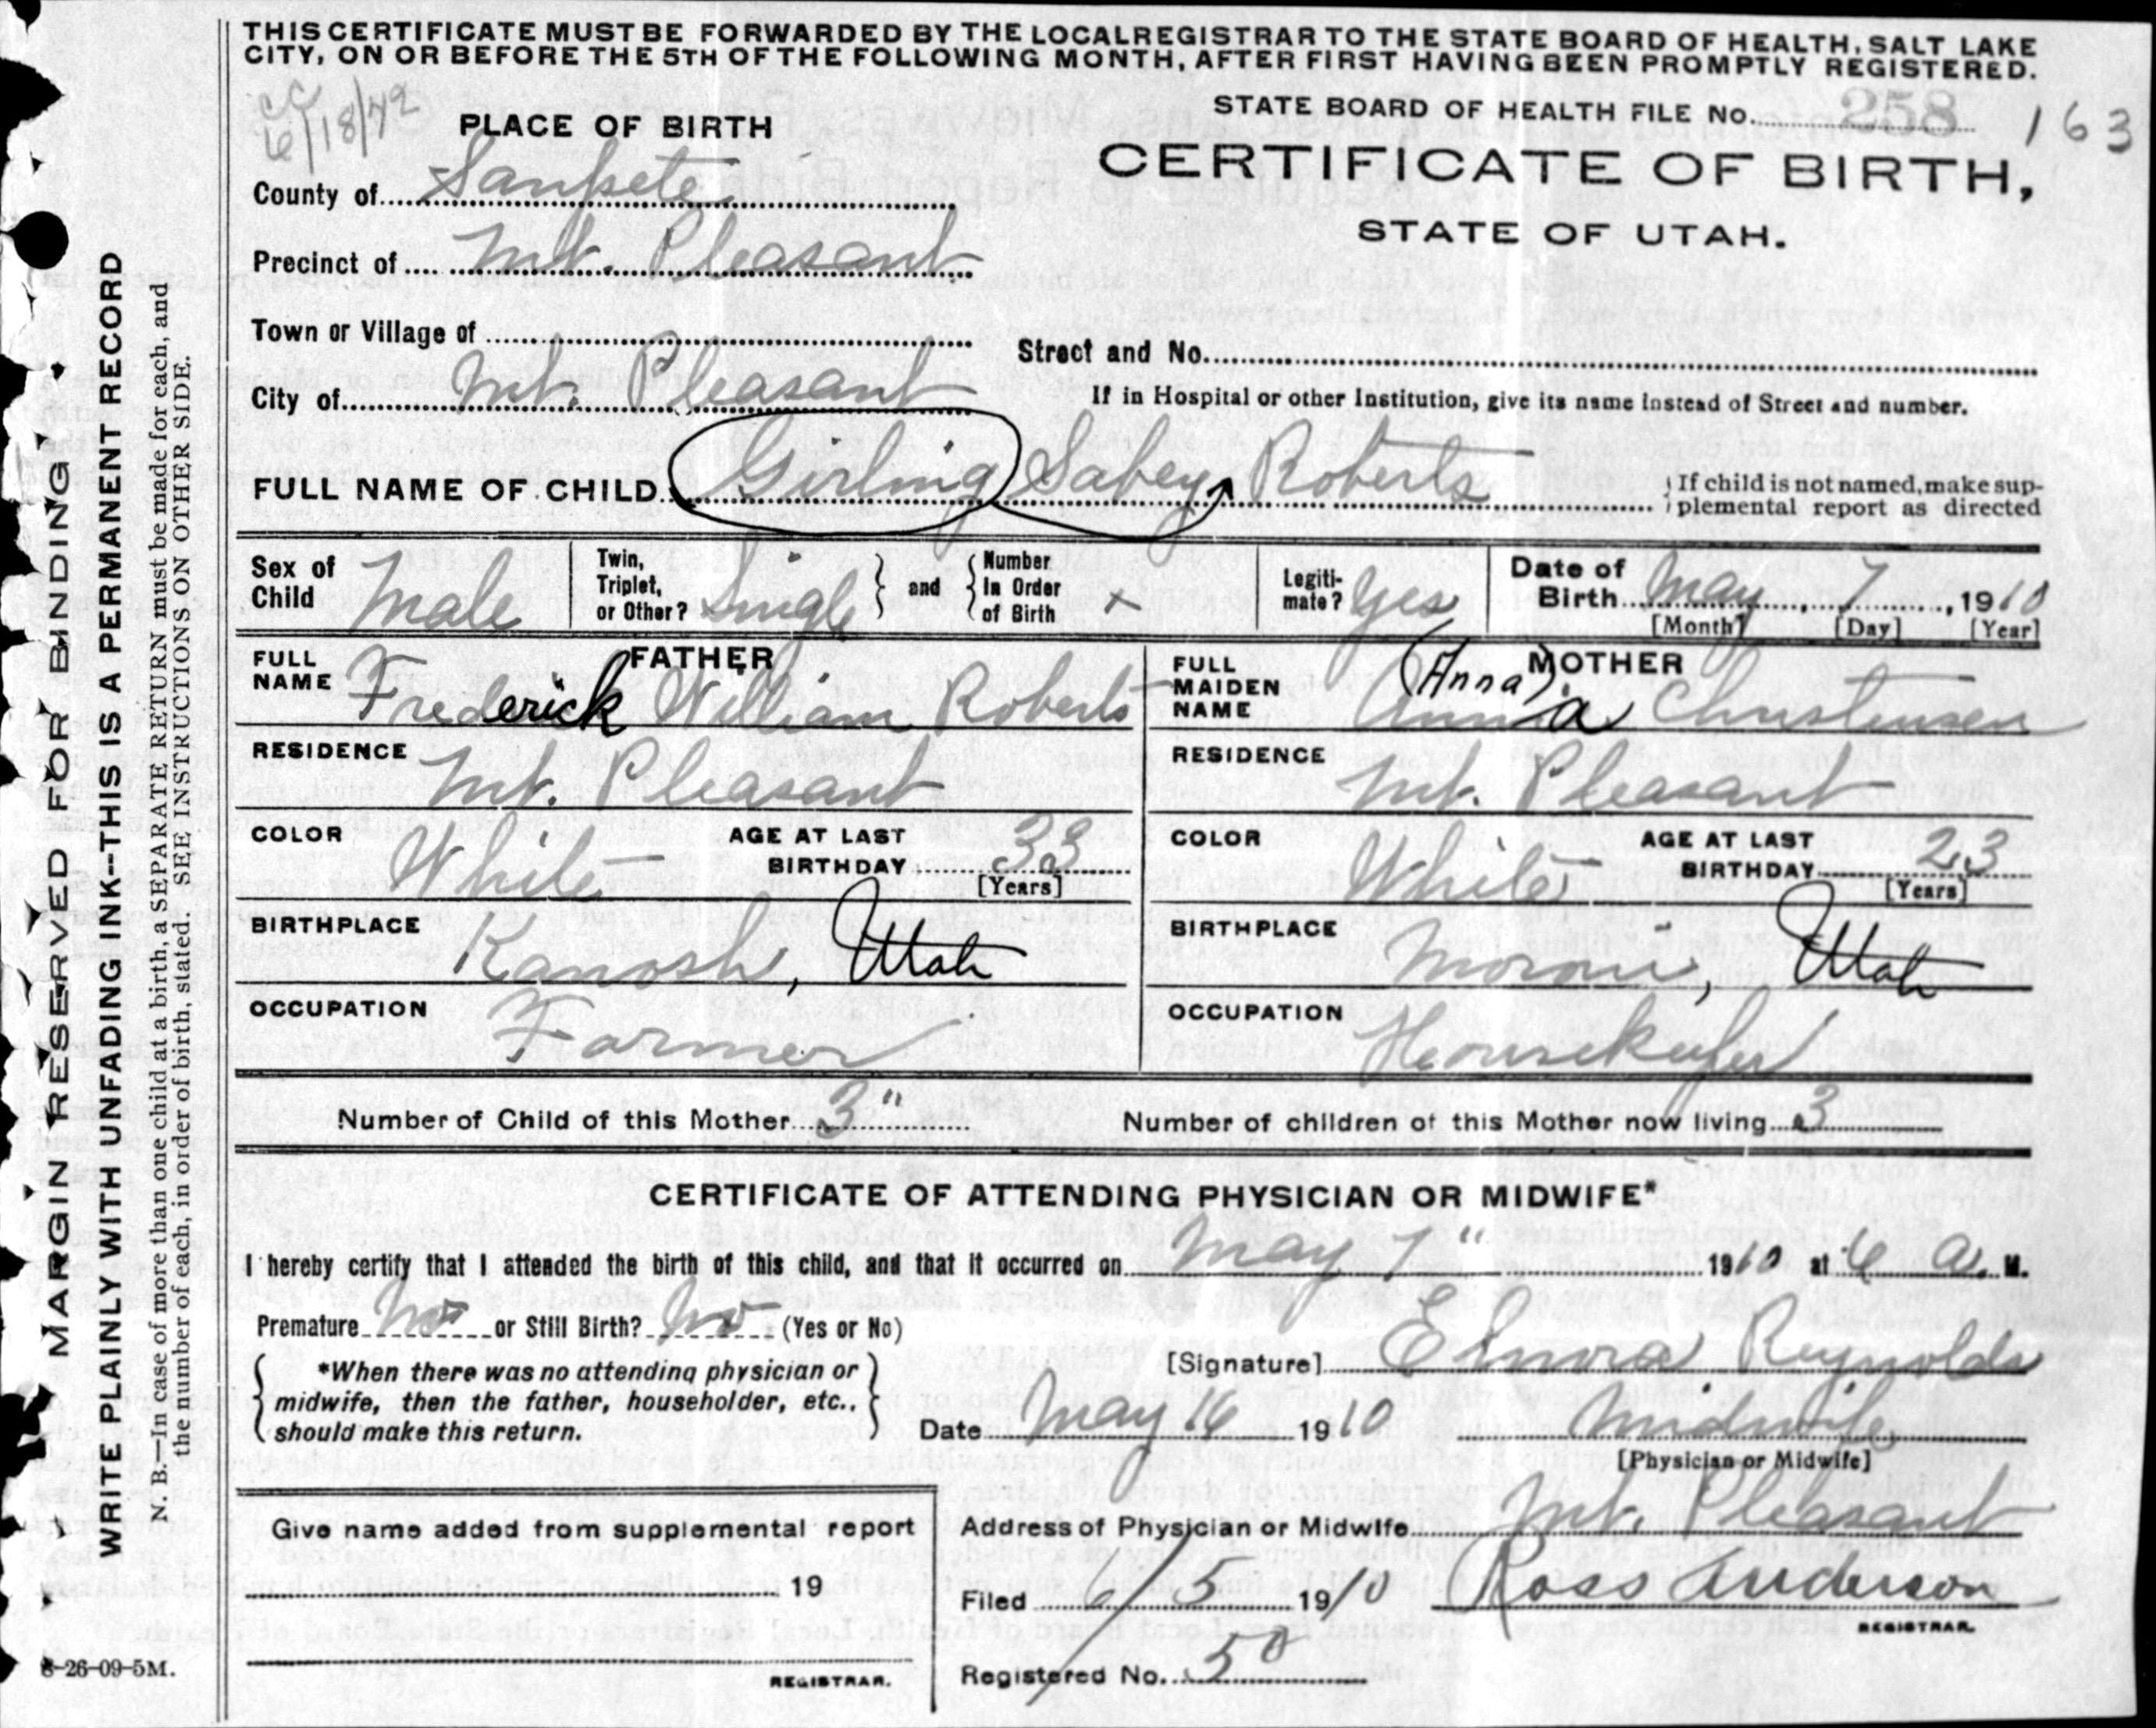 THIS CERTIFICATE MUST BE FORWARDED BY THE LOCAL REGISTRAR TO THE STATE BOARD OF HEALTH, SALT LAKE
CITY, ON OR BEFORE THE 5TH OF THE FOLLOWING MONTH, AFTER FIRST HAVING BEEN PROMPTLY REGISTERED.
STATE BOARD OF HEALTH FILE No. 258 163
CC
6/18/42
PLACE OF BIRTH
CERTIFICATE OF BIRTH,
STATE OF UTAH.
County of Sanpete
Precinct of Mt. Pleasant
Town or Village of
Street and No.
City of Mt. Pleasant
If in Hospital or other Institution, give its name instead of Street and number.
FULL NAME OF CHILD Girling Sabey Roberts
If child is not named, make sup-
plemental report as directed
Sex of Child Male
Twin, Triplet, or Other? Single and Number In Order of Birth x
Legiti-mate? Yes
Date of Birth May, 7, 1910
[Month] [Day] [Year]
FATHER
FULL NAME Frederick William Roberts
MOTHER
FULL MAIDEN NAME (Anna) Anna Christensen
RESIDENCE Mt. Pleasant
RESIDENCE Mt. Pleasant
COLOR White AGE AT LAST BIRTHDAY 33 [Years]
COLOR White AGE AT LAST BIRTHDAY 23 [Years]
BIRTHPLACE Kanosh, Utah
BIRTHPLACE Moroni, Utah
OCCUPATION Farmer
OCCUPATION Housekeeper
Number of Child of this Mother 3"
Number of children of this Mother now living 3
CERTIFICATE OF ATTENDING PHYSICIAN OR MIDWIFE*
I hereby certify that I attended the birth of this child, and that it occurred on May 7" 1910 at 6 a. M.
Premature No or Still Birth? No. (Yes or No)
*When there was no attending physician or
midwife, then the father, householder, etc.,
should make this return.
[Signature] Elnora Reynolds
Date May 16 1910 Midwife
[Physician or Midwife]
Give name added from supplemental report
19
REGISTRAR.
Address of Physician or Midwife Mt. Pleasant
Filed 6/5 1910 Ross Anderson
REGISTRAR.
Registered No. 50
8-26-09-5M.
MARGIN RESERVED FOR BINDING
WRITE PLAINLY WITH UNFADING INK--THIS IS A PERMANENT RECORD
N. B.—In case of more than one child at a birth, a SEPARATE RETURN must be made for each, and
the number of each, in order of birth, stated. SEE INSTRUCTIONS ON OTHER SIDE.